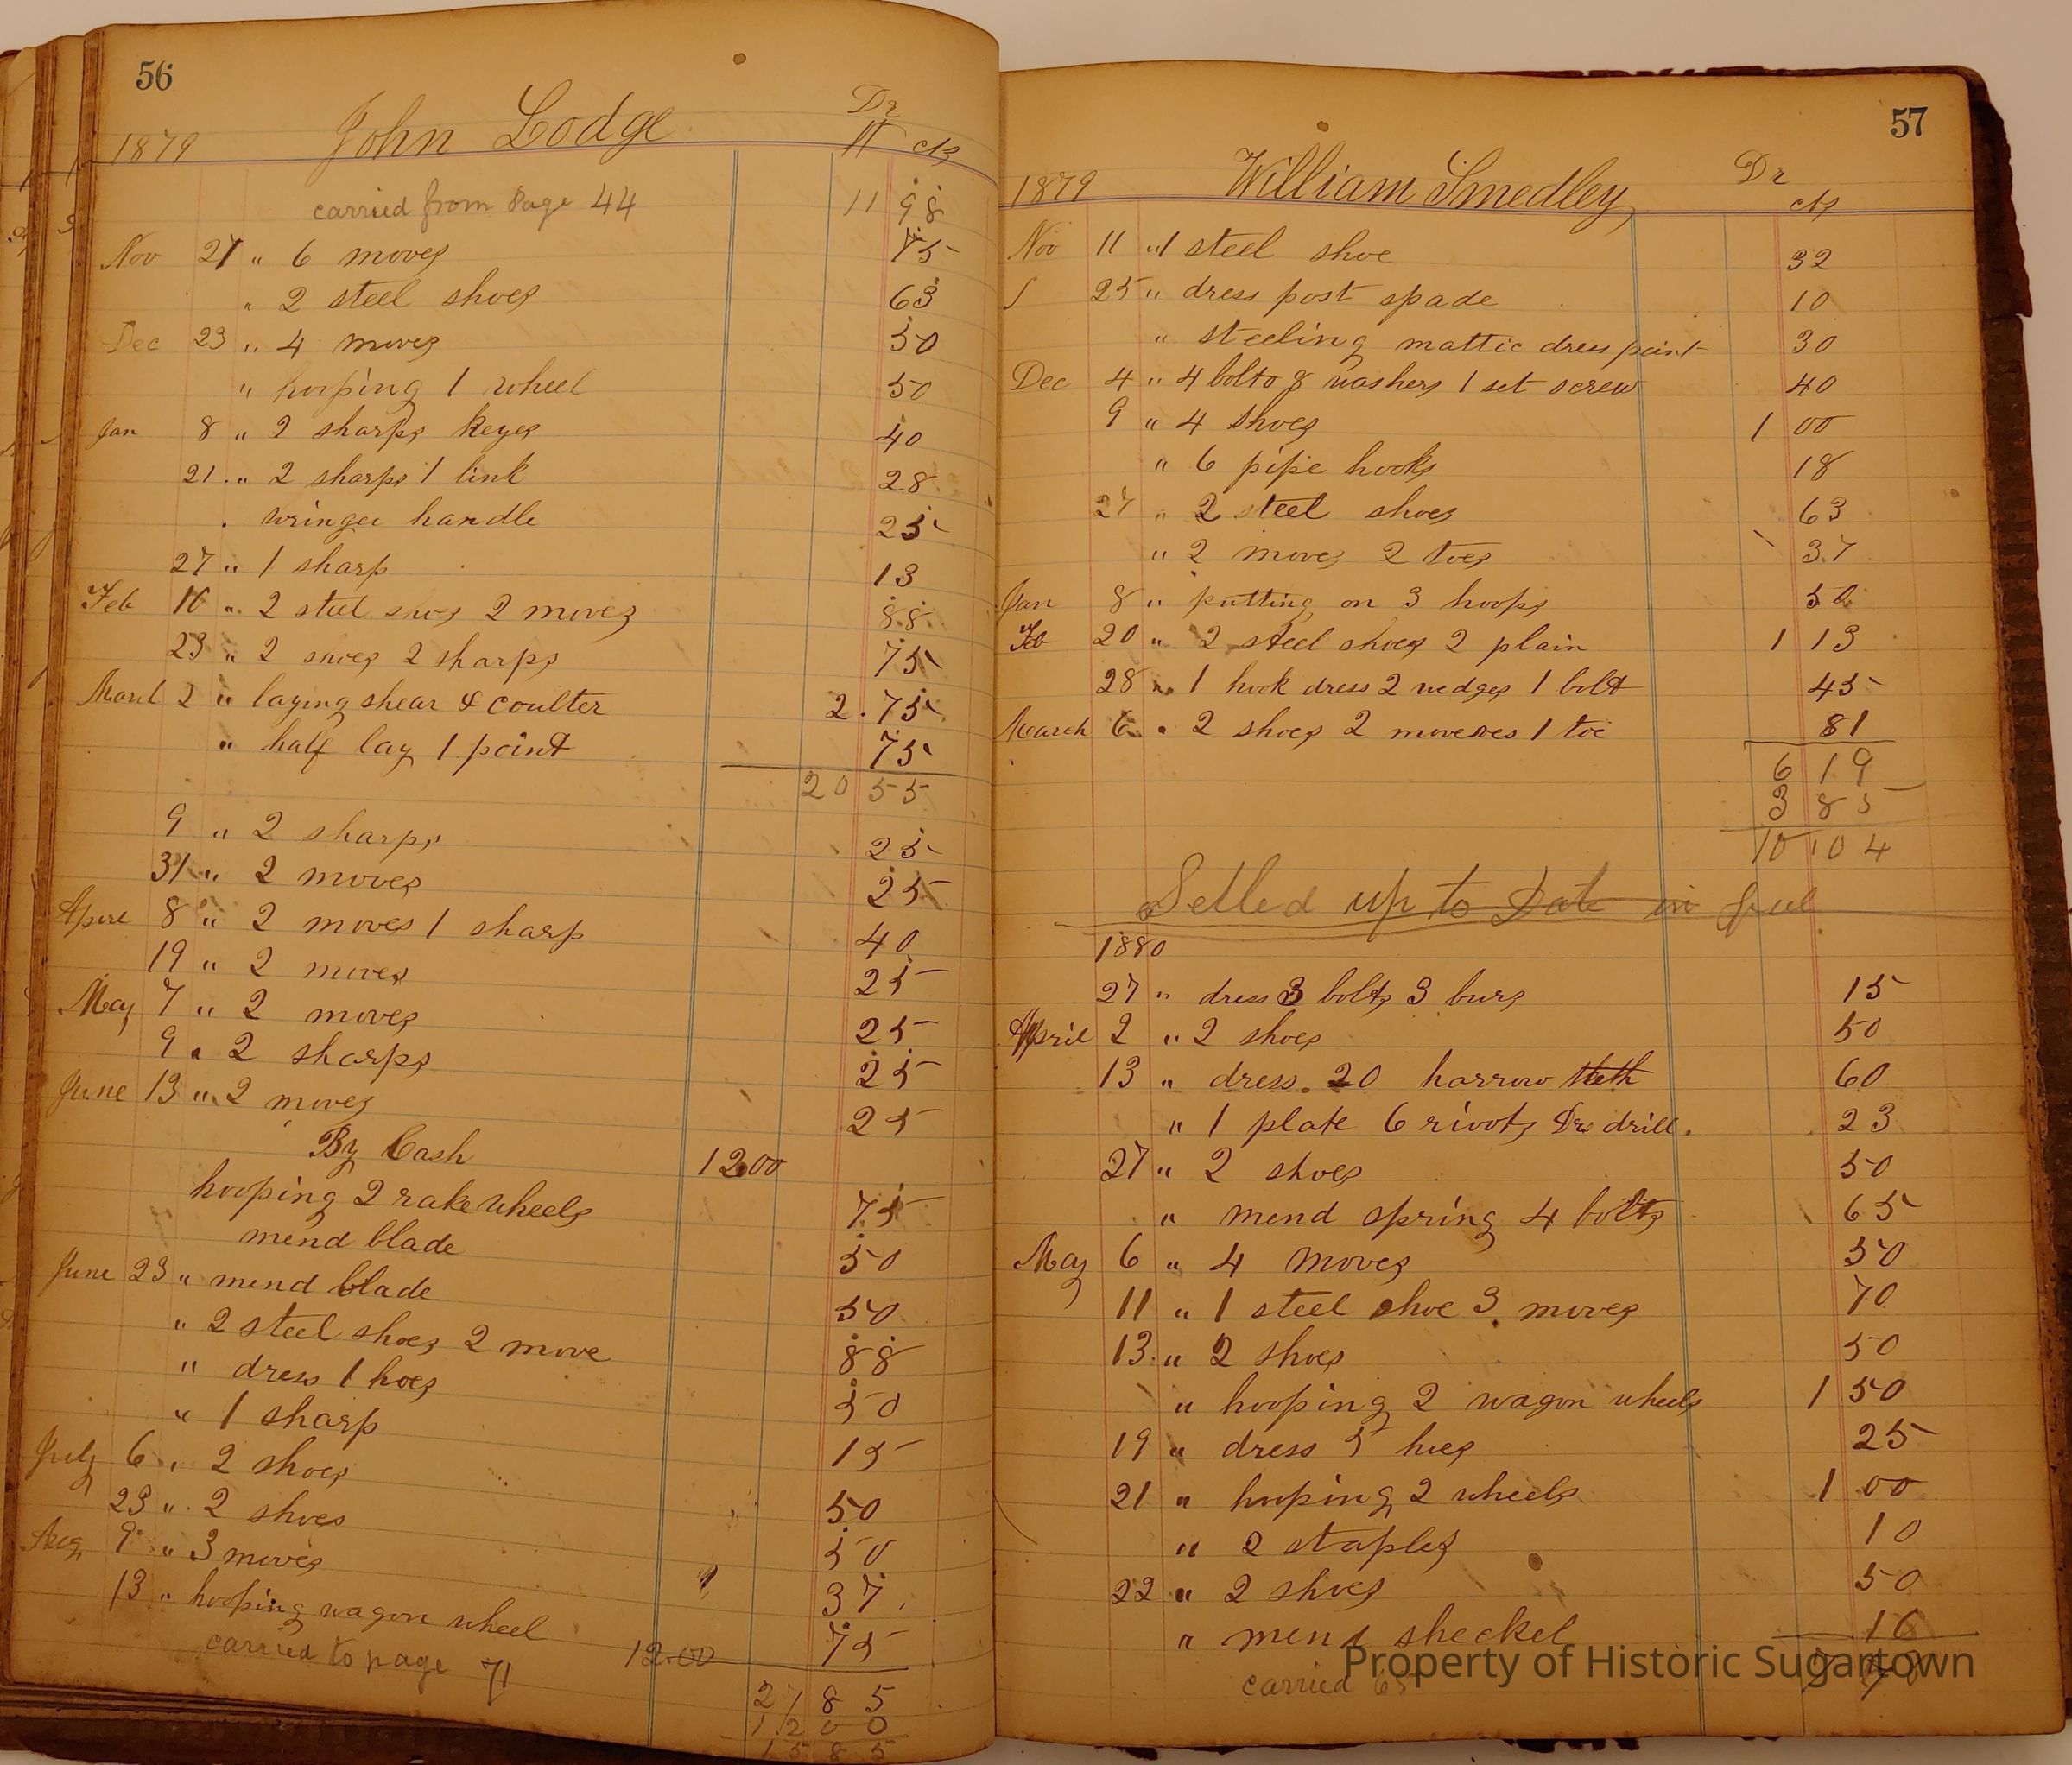 56
John Lodge Dr
1879 cts
carried from Page 44 11 98
Nov 27 " 6 moves 75
" 2 steel shoes 63
Dec 23 " 4 moves 50
" hooping 1 wheel 50
Jan 8 " 2 sharps keyes 40
21 " 2 sharps 1 link 28
wringer handle 25
27 " 1 sharp 13
Feb 10 " 2 steel shoes 2 moves 88
23 " 2 shoes 2 sharps 75
March 2 " laying shear & coulter 2.75
" half lay 1 point 75
20 55
9 " 2 sharps 25
31 " 2 moves 25
Aprel 8 " 2 moves 1 sharp 40
19 " 2 moves 25
May 7 " 2 moves 25
9 " 2 sharps 25
June 13 " 2 moves 25
By Cash 12.00
hooping 2 rake wheels 75
mend blade 50
June 23 " mend blade 50
" 2 steel shoes 2 move 88
" dress 1 hoes 50
" 1 sharp 15
July 6 " 2 shoes 50
23 " 2 shoes 50
Aug 9 " 3 moves 37
13 " hooping wagon wheel 75
carried to page 71 12.00
27 85
12 00
15 85
57
William Smedley Dr
1879 cts
Nov 11 " 1 steel shoe 32
25 " dress post spade 10
" steeling mattic dress point 30
Dec 4 " 4 bolts 8 washers 1 set screw 40
9 " 4 shoes 1 00
" 6 pipe hooks 18
27 " 2 steel shoes 63
" 2 moves 2 toes 37
Jan 8 " putting on 3 hoops 50
Feb 20 " 2 steel shoes 2 plain 1 13
28 " 1 hook dress 2 wedges 1 bolt 45
March 6 " 2 shoes 2 moveses 1 toe 81
6 19
3 85
10 04
Setled up to Date in full
1880
27 " dress 3 bolts 3 burs 15
April 2 " 2 shoes 50
13 " dress 20 harrow teeth 60
" 1 plate 6 rivots Dr drill. 23
27 " 2 shoes 50
" mend spring 4 bolts 65
May 6 " 4 moves 50
11 " 1 steel shoe 3 moves 70
13 " 2 shoes 50
" hooping 2 wagon wheels 1 50
19 " dress 5 hoes 25
21 " hooping 2 wheels 1 00
" 2 staples 10
22 " 2 shoes 50
" mend sheckel 16
carried 65
Property of Historic Sugartown